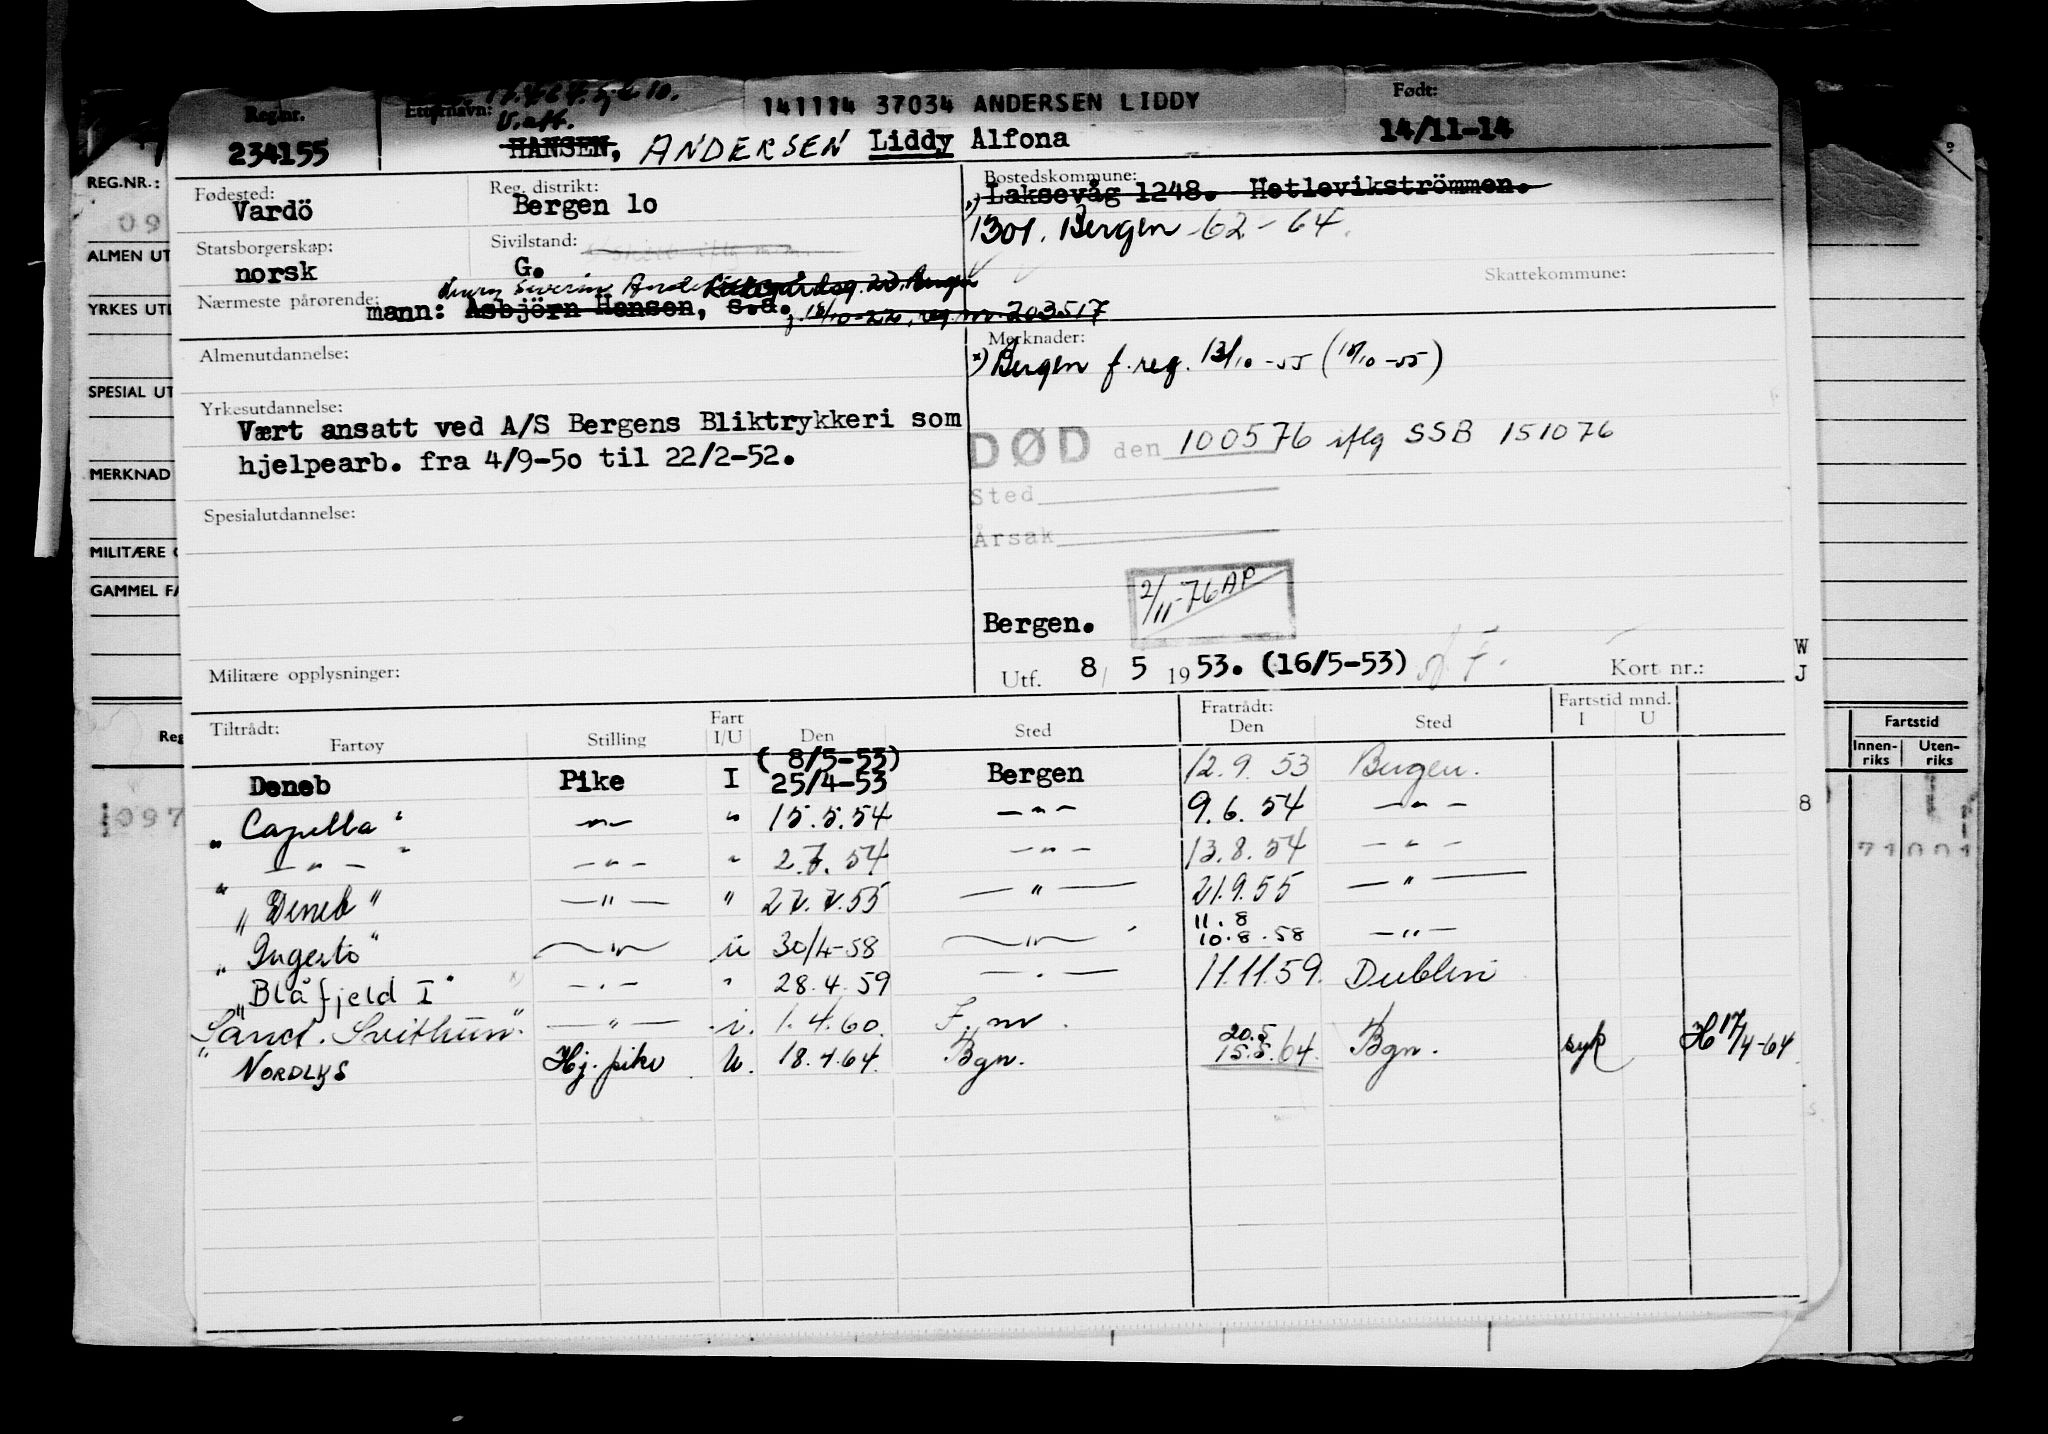 141114 37034 ANDERSEN LIDDY
Reg.nr.
234155
Etternavn:
HANSEN, ANDERSEN Liddy Alfona
Født:
14/11-14
Fødested:
Vardö
Reg. distrikt:
Bergen 10
Bostedskommune:
Laksevåg 1248. Hetlevikströmmen.
1301. Bergen -62-64.
Statsborgerskap:
norsk
Sivilstand:
G.
Skattekommune:
Nærmeste pårørende:
mann: Asbjörn Hansen, s.a.
reg. nr. 203517
Almenutdannelse:
Merknader:
x) Bergen f. reg. 13/10-55 (18/10-55)
Yrkesutdannelse:
Vært ansatt ved A/S Bergens Bliktrykkeri som
hjelpearb. fra 4/9-50 til 22/2-52.
DØD den 100576 iflg SSB 151076
Sted
Årsak
Spesialutdannelse:
2/11-76 AP
Bergen.
Militære opplysninger:
Utf. 8/ 5 1953. (16/5-53)
Kort nr.:
W
J
Tiltrådt:
Fartøy
Stilling
Fart
I/U
Den
Sted
Fratrådt:
Den
Sted
Fartstid mnd.
I U
Deneb Pike I (8/5-53) 25/4-53 Bergen 12.9.53 Bergen.
"Capella" -"- " 15.5.54 -"- 9.6.54 -"-
" -"- " -"- " 2.7.54 -"- 13.8.54 -"-
"Deneb" -"- " 27.7.55 -"- 21.9.55 -"-
"Ingertö" -"- u 30/4-58 -"- 11.8 10.8.58 -"-
"Blåfjeld I" -"- " 28.4.59 -"- 11.11.59. Dublin
"Sanct. Svithun" -"- i. 1.4.60. F.m.
NORDLYS Hj. pike U. 18.4.64. Bgn. 20.5 15.5.64. Bgn. syk H 17/4-64
8
REG.NR.:
09
ALMEN UT
YRKES UT
SPESIAL UT
MERKNAD
MILITÆRE
GAMMEL FA
Reg
1097
Fartstid
Innen-
riks
Uten-
riks
71001